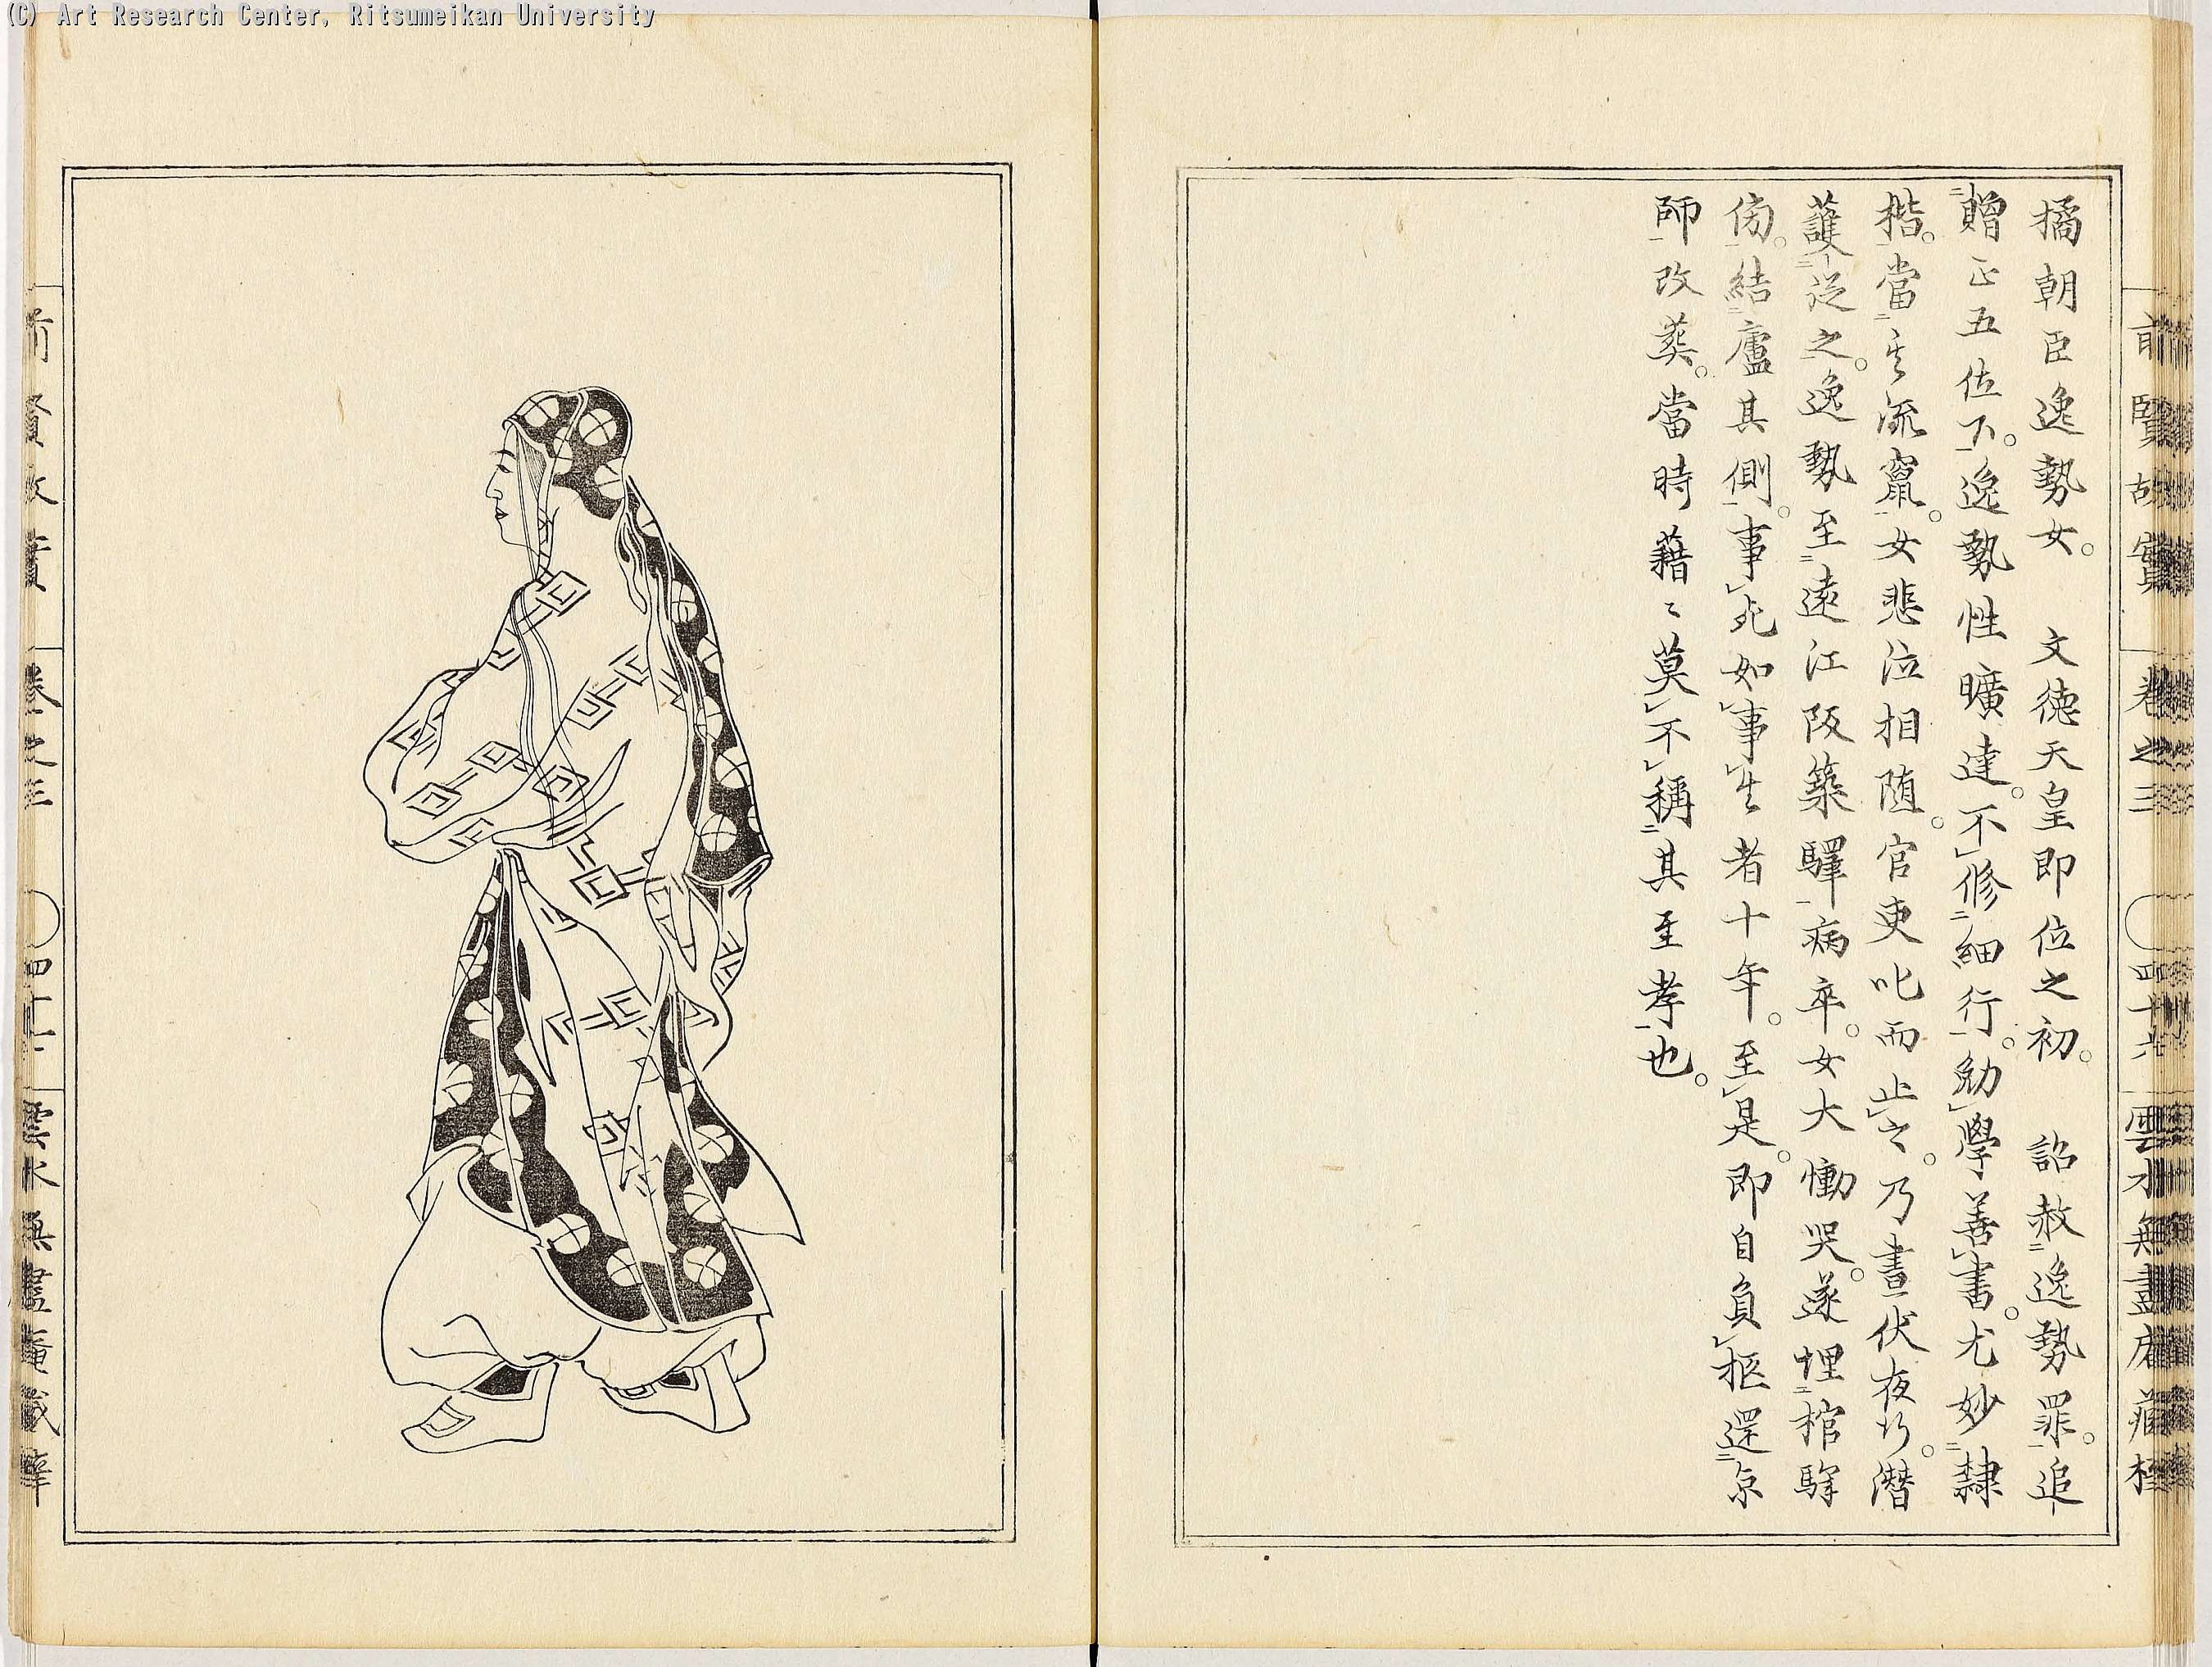 (C) Art Research Center, Ritsumeikan University
前賢故實 卷之三 四十六 雲水無盡庵藏
橘朝臣逸勢女。 文徳天皇即位之初。 詔赦逸勢罪。追
贈正五位下。逸勢性曠達。不修細行。勉學善書。尤妙隷
楷。當其流竄。女悲泣相随。官吏叱而止之。乃晝伏夜行。潜
護従之。逸勢至遠江阪築驛病卒。女大慟哭。遂埋棺驛
傍。結廬其側。事死如事生者十年。至是。即自負柩還京
師改葬。當時藉〻莫不稱其至孝也。
前賢故實 卷之三 雲水無盡庵藏